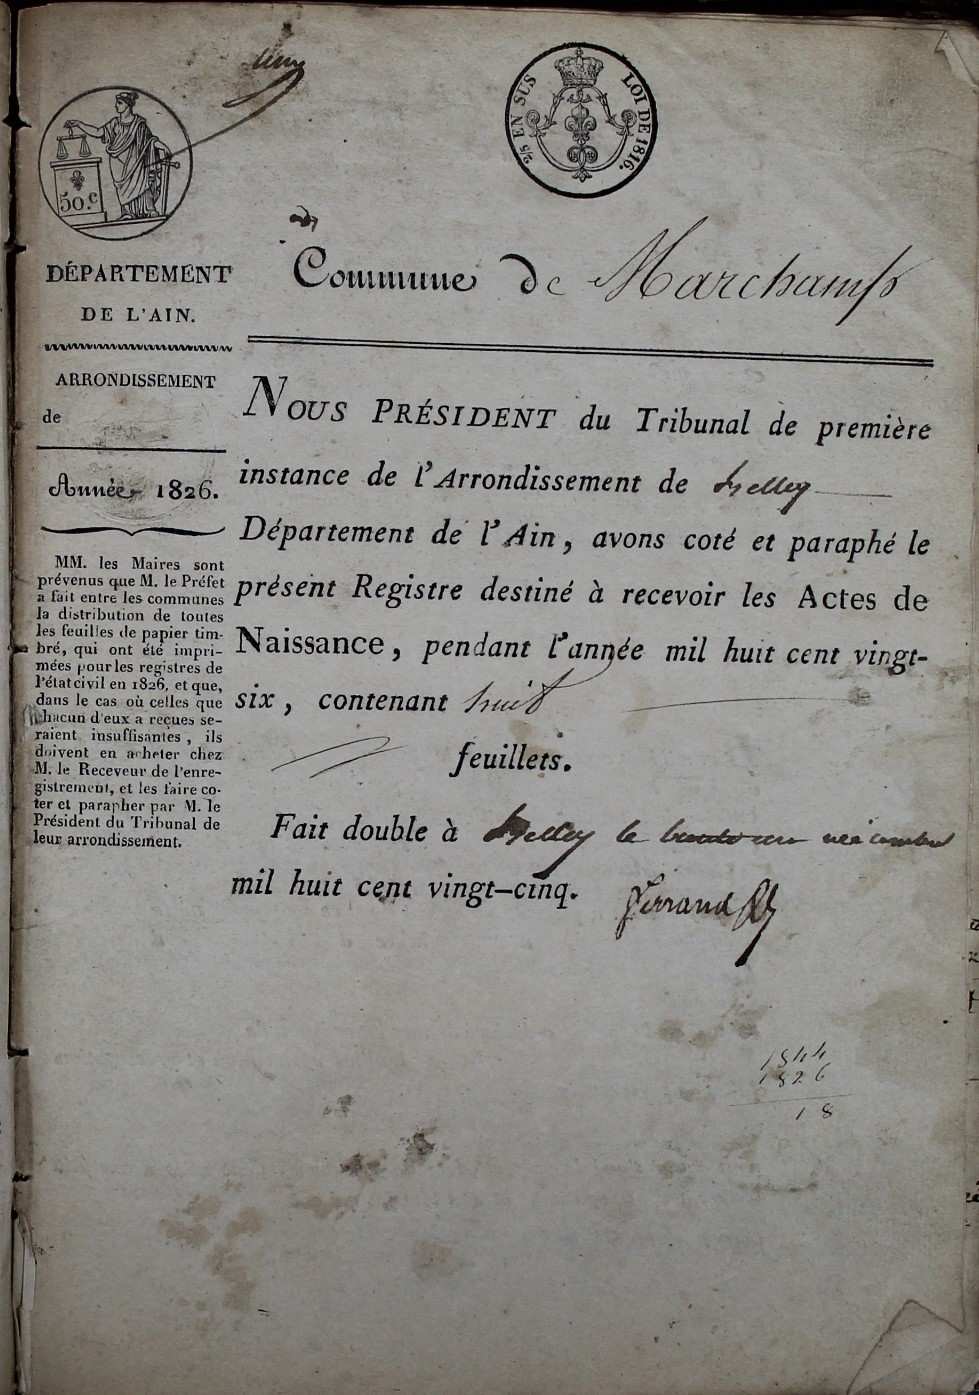 2/5 EN SUS
LOI DE 1816.
50.c
DÉPARTEMENT
DE L'AIN.
ARRONDISSEMENT
de
Année 1826.
MM. les Maires sont
prévenus que M. le Préfet
a fait entre les communes
la distribution de toutes
les feuilles de papier tim-
bré, qui ont été impri-
mées pour les registres de
l'état civil en 1826, et que,
dans le cas où celles que
chacun d'eux a reçues se-
raient insuffisantes, ils
doivent en acheter chez
M. le Receveur de l'enre-
gistrement, et les faire co-
ter et parapher par M. le
Président du Tribunal de
leur arrondissement.
Commune de Marchamp
NOUS PRÉSIDENT du Tribunal de première
instance de l'Arrondissement de Belley
Département de l'Ain, avons coté et paraphé le
présent Registre destiné à recevoir les Actes de
Naissance, pendant l'année mil huit cent vingt-
six, contenant huit
feuillets.
Fait double à Belley le
mil huit cent vingt-cinq.
Ferrand
1844
1826
18